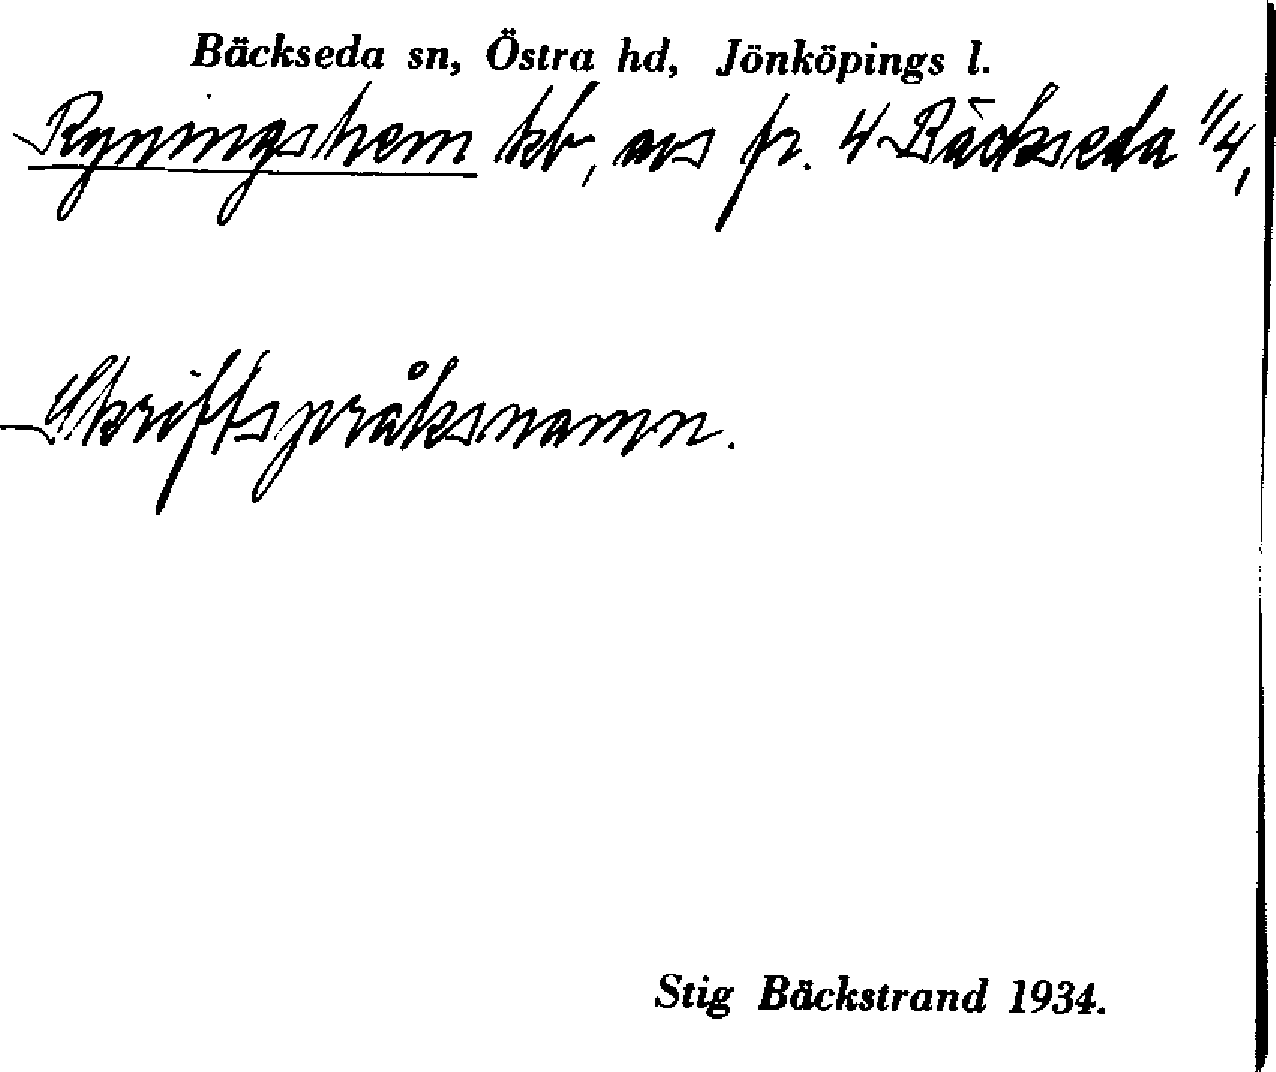 Bäckseda sn, Östra hd, Jönköpings l.
Ryningshem lht, avs fr. 4 Bäckseda 1/4,
Skriftspråksnamn.
Stig Bäckstrand 1934.